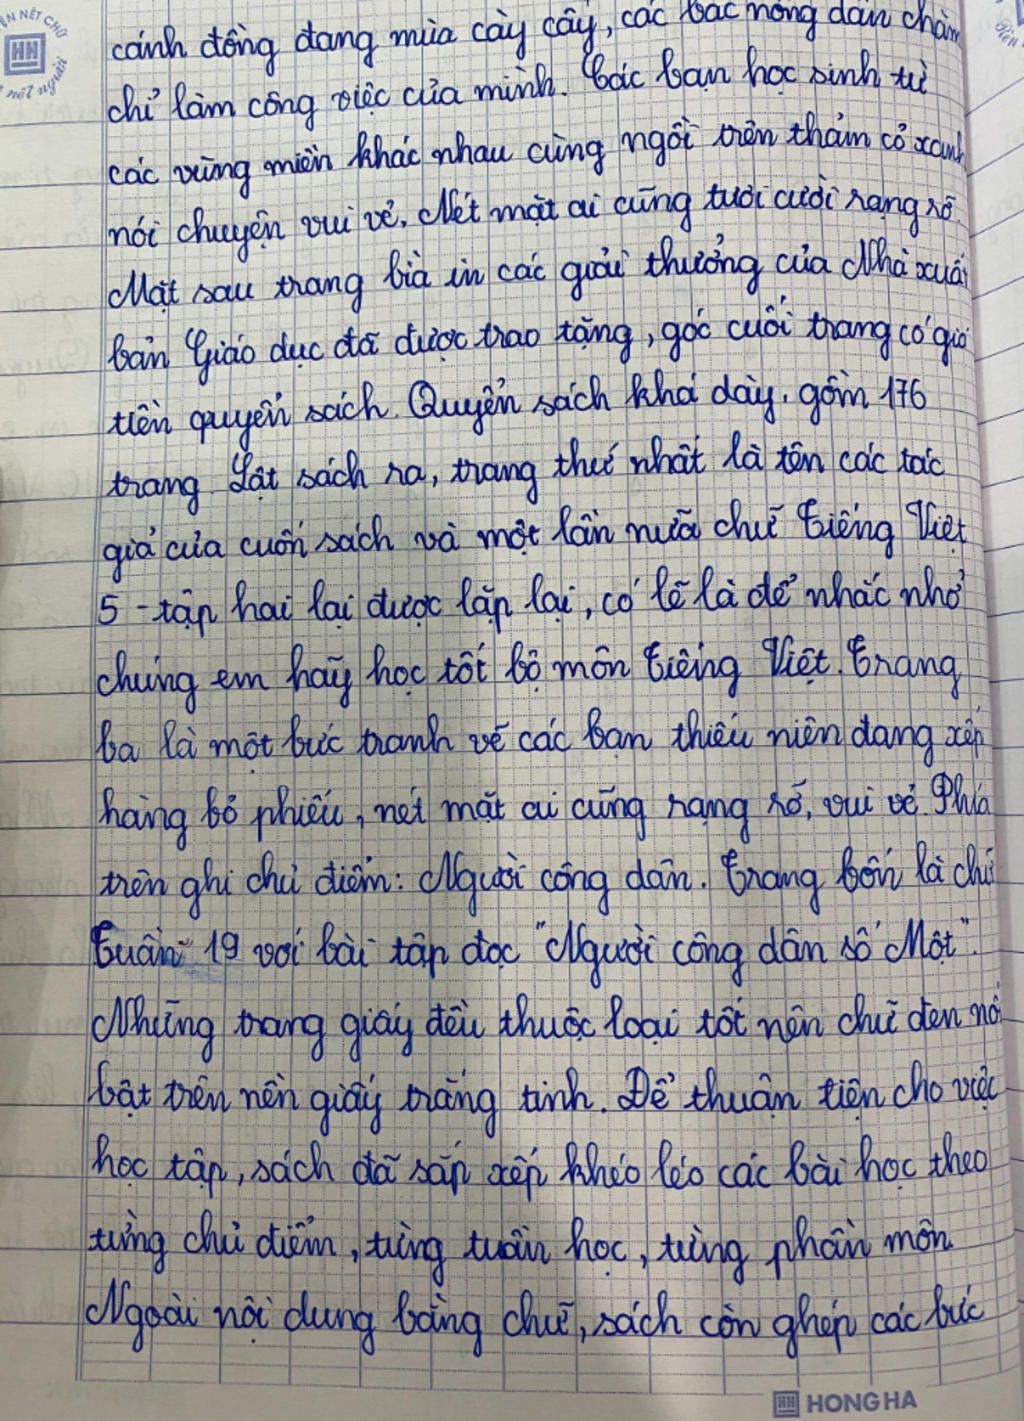 ÊN NÉT CHỮ
HH
nét người
Rèn
cánh đồng đang mùa cày cấy, các bác nông dân chăm
chỉ làm công việc của mình. Các bạn học sinh từ
các vùng miền khác nhau cùng ngồi trên thảm cỏ xanh
nói chuyện vui vẻ. Nét mặt ai cũng tươi cười rạng rỡ.
Mặt sau trang bìa in các giải thưởng của Nhà xuất
bản Giáo dục đã được trao tặng, góc cuối trang có giá
tiền quyển sách. Quyển sách khá dày, gồm 176
trang. Lật sách ra, trang thứ nhất là tên các tác
giả của cuốn sách và một lần nữa chữ Tiếng Việt
5 - tập hai lại được lặp lại, có lẽ là để nhắc nhở
chúng em hãy học tốt bộ môn Tiếng Việt. Trang
ba là một bức tranh vẽ các bạn thiếu niên đang xếp
hàng bỏ phiếu, nét mặt ai cũng rạng rỡ, vui vẻ. Phía
trên ghi chủ điểm: Người công dân. Trang bốn là chữ
Tuần 19 với bài tập đọc "Người công dân số Một".
Những trang giấy đều thuộc loại tốt nên chữ đen nổi
bật trên nền giấy trắng tinh. Để thuận tiện cho việc
học tập, sách đã sắp xếp khéo léo các bài học theo
từng chủ điểm, từng tuần học, từng phân môn.
Ngoài nội dung bằng chữ, sách còn ghép các bức
HH HONG HA